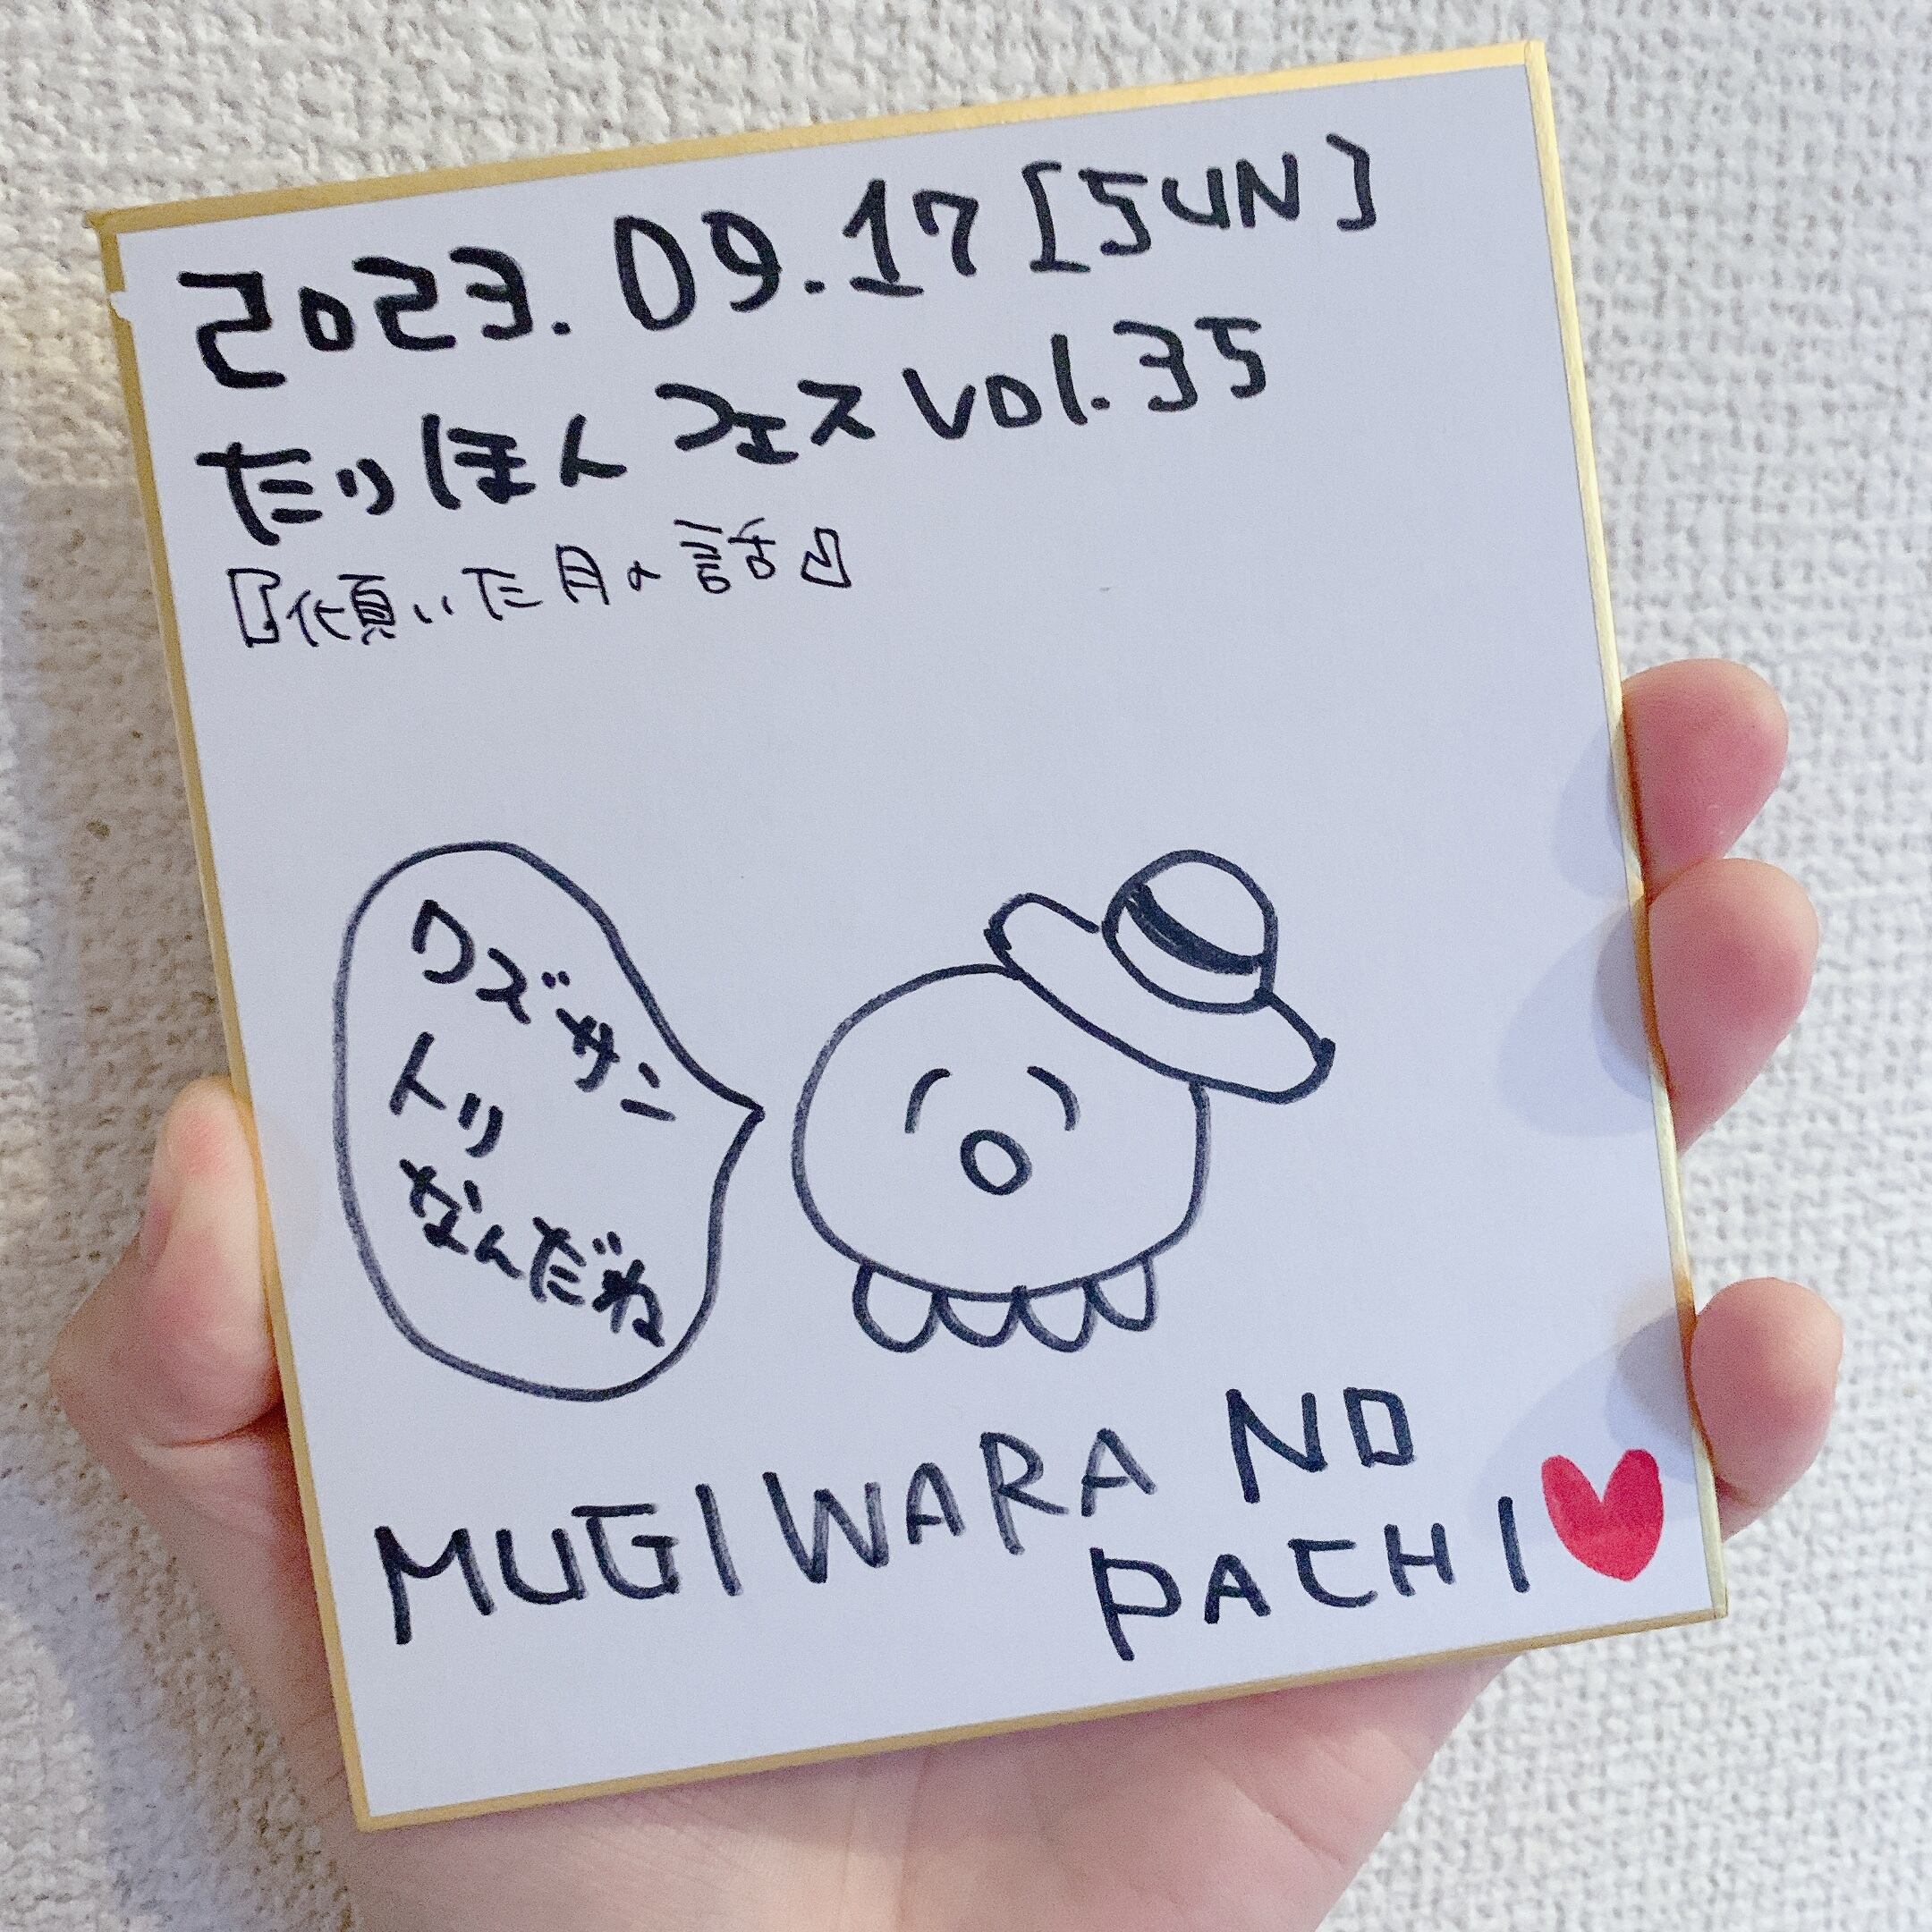 2023.09.17[SUN]
たりほんフェスvol.35
『傾いた月の話』
ワズサン
トリ
なんだね
MUGIWARA NO
PACHI